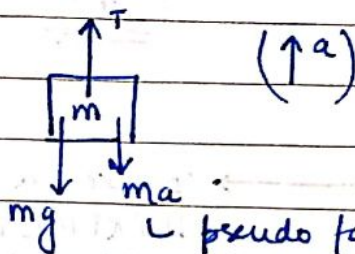 T
(↑ a)
m
ma
mg
pseudo